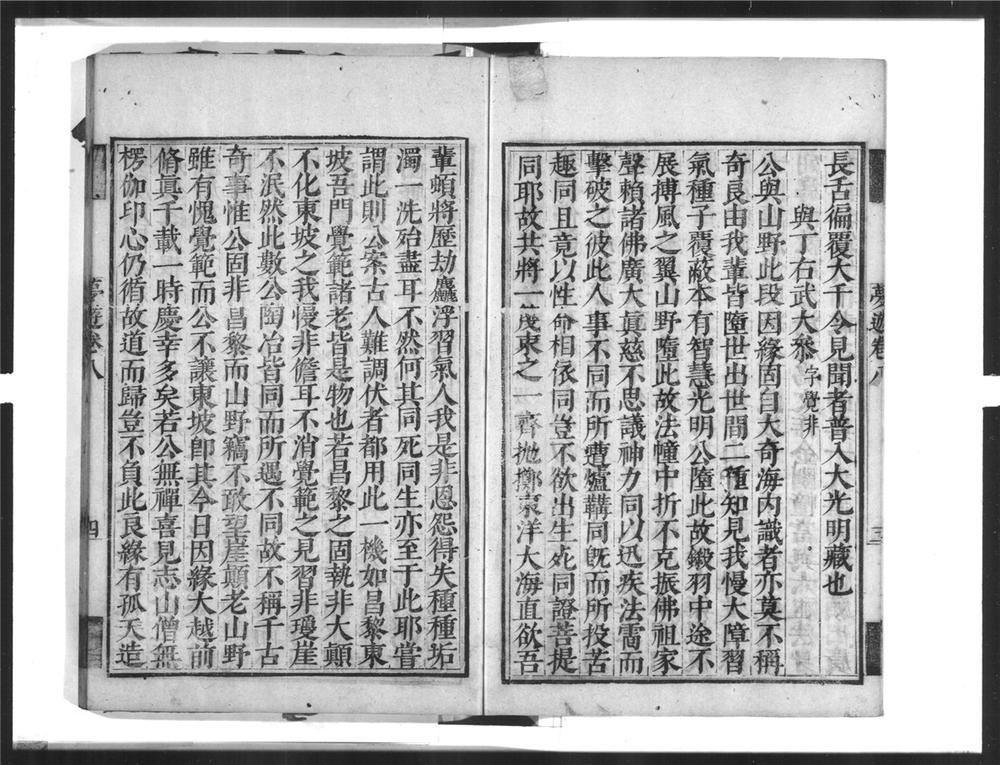 長舌徧覆大千令見聞者普入大光明藏也
與丁右武大叅字覺非
公與山野此段因緣固自大奇海內識者亦莫不稱
奇良由我輩皆墮世出世間二種知見我慢大障習
氣種子覆蔽本有智慧光明公墮此故鎩羽中途不
展搏風之翼山野墮此故法幢中折不克振佛祖家
聲賴諸佛廣大眞慈不思議神力同以迅疾法雷而
擊破之彼此人事不同而所遭爐鞲同旣而所投苦
趣同且竟以性命相依同豈不欲出生死同證菩提
同耶故共將一束之一齊拋擲東洋大海直欲吾
輩頓將歷劫麤浮習氣人我是非恩怨得失種種垢
濁一洗殆盡耳不然何其同死同生亦至于此耶嘗
謂此則公案古人難調伏者都用此一機如昌黎東
坡吾門覺範諸老皆是物也若昌黎之固執非大顛
不化東坡之我慢非儋耳不消覺範之見習非瓊崖
不泯然此數公陶冶皆同而所遇不同故不稱千古
奇事惟公固非昌黎而山野竊不敢望崖顛老山野
雖有愧覺範而公不讓東坡卽其今日因緣大越前
脩眞千載一時慶幸多矣若公無禪喜見志山僧無
楞伽印心仍循故道而歸豈不負此良緣有孤天造
夢遊卷八
三
夢遊卷八
四